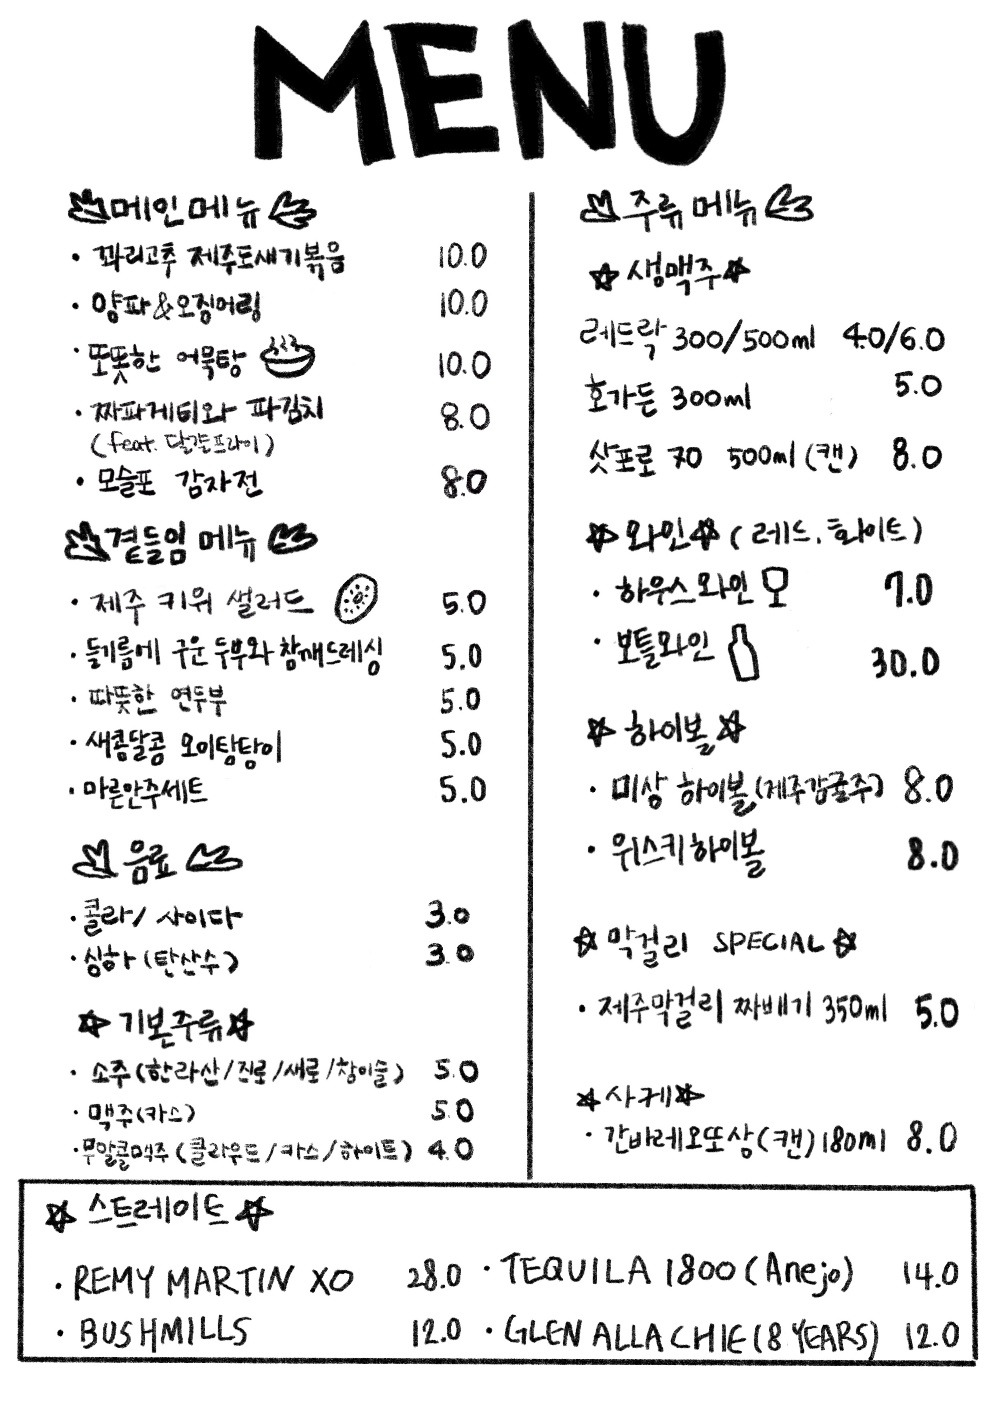 MENU
메인메뉴
· 꽈리고추 제주도새기볶음 10.0
· 양파&오징어링 10.0
· 또똣한 어묵탕 10.0
· 짜파게티와 파김치 8.0
(feat. 달걀프라이)
· 모슬포 감자전 8.0
곁들임 메뉴
· 제주 키위 샐러드 5.0
· 들기름에 구운 두부와 참깨드레싱 5.0
· 따뜻한 연두부 5.0
· 새콤달콤 오이탕탕이 5.0
· 마른안주세트 5.0
음료
· 콜라/ 사이다 3.0
· 싱하 (탄산수) 3.0
☆기본주류☆
· 소주(한라산/진로/새로/참이슬) 5.0
· 맥주(카스) 5.0
· 무알콜맥주 (클라우드/카스/하이트) 4.0
주류 메뉴
☆생맥주☆
레드락 300/500ml 4.0/6.0
호가든 300ml 5.0
삿포로 70 500ml (캔) 8.0
☆와인☆ (레드, 화이트)
· 하우스와인 7.0
· 보틀와인 30.0
☆하이볼☆
· 미상 하이볼(제주감귤주) 8.0
· 위스키하이볼 8.0
☆막걸리 SPECIAL☆
· 제주막걸리 짜배기 350ml 5.0
☆사케☆
· 간바레오또상(캔) 180ml 8.0
☆스트레이트☆
· REMY MARTIN XO 28.0 · TEQUILA 1800 (Anejo) 14.0
· BUSHMILLS 12.0 · GLEN ALLACHIE (8 YEARS) 12.0